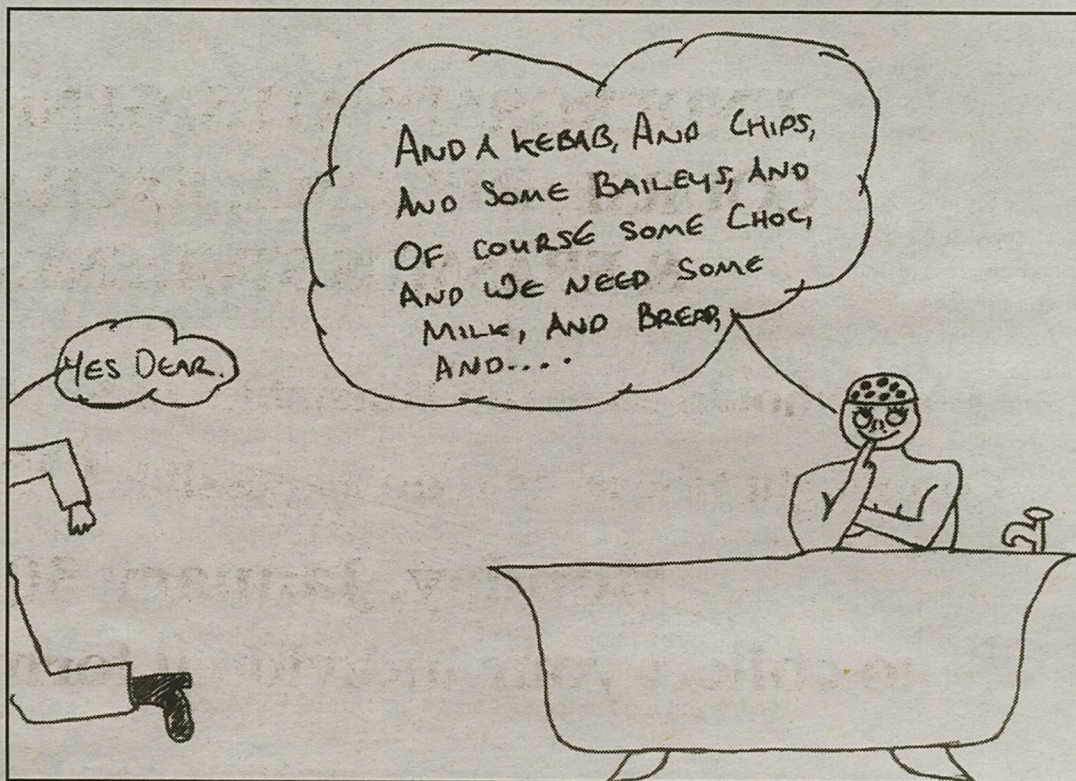 AND A KEBAB, AND CHIPS,
AND SOME BAILEYS, AND
OF COURSE SOME CHOC,
AND WE NEED SOME
MILK, AND BREAD,
AND....
YES DEAR.